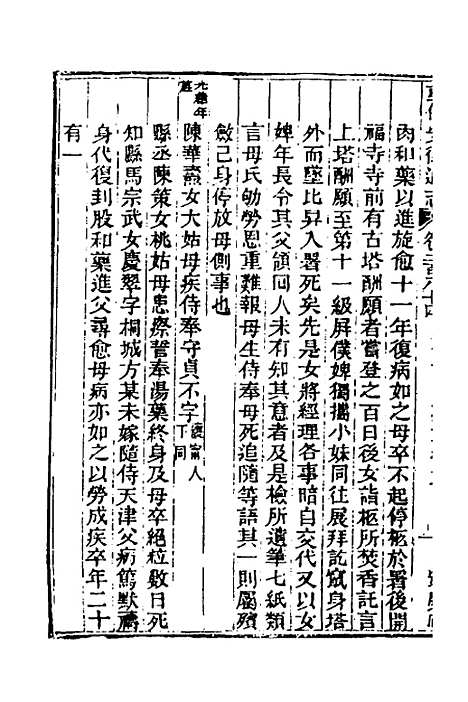 肉和藥以進旋愈十一年復病如之母卒不起停柩於署後開
福寺寺前有古塔酬願者嘗登之百日後女詣柩所焚香託言
上塔酬願至第十一級屏僕婢獨攜小妹同往展拜訖竄身塔
外而墜比舁入署死矣先是女將經理各事暗自交代又以女
婢年長令其父領回人未有知其意者及是檢所遺筆七紙類
言母氏劬勞恩重難報母生侍奉母死追隨等語其一則屬殯
斂己身停放母側事也
陳華燾女大姑母疾侍奉守貞不字
縣丞陳策女桃姑母患瘵誓奉湯藥終身及母卒絕粒數日死
知縣馬宗武女慶翠字桐城方某未嫁隨侍天津父病篤默禱
身代復刲股和藥進父尋愈母病亦如之以勞成疾卒年二十
有一